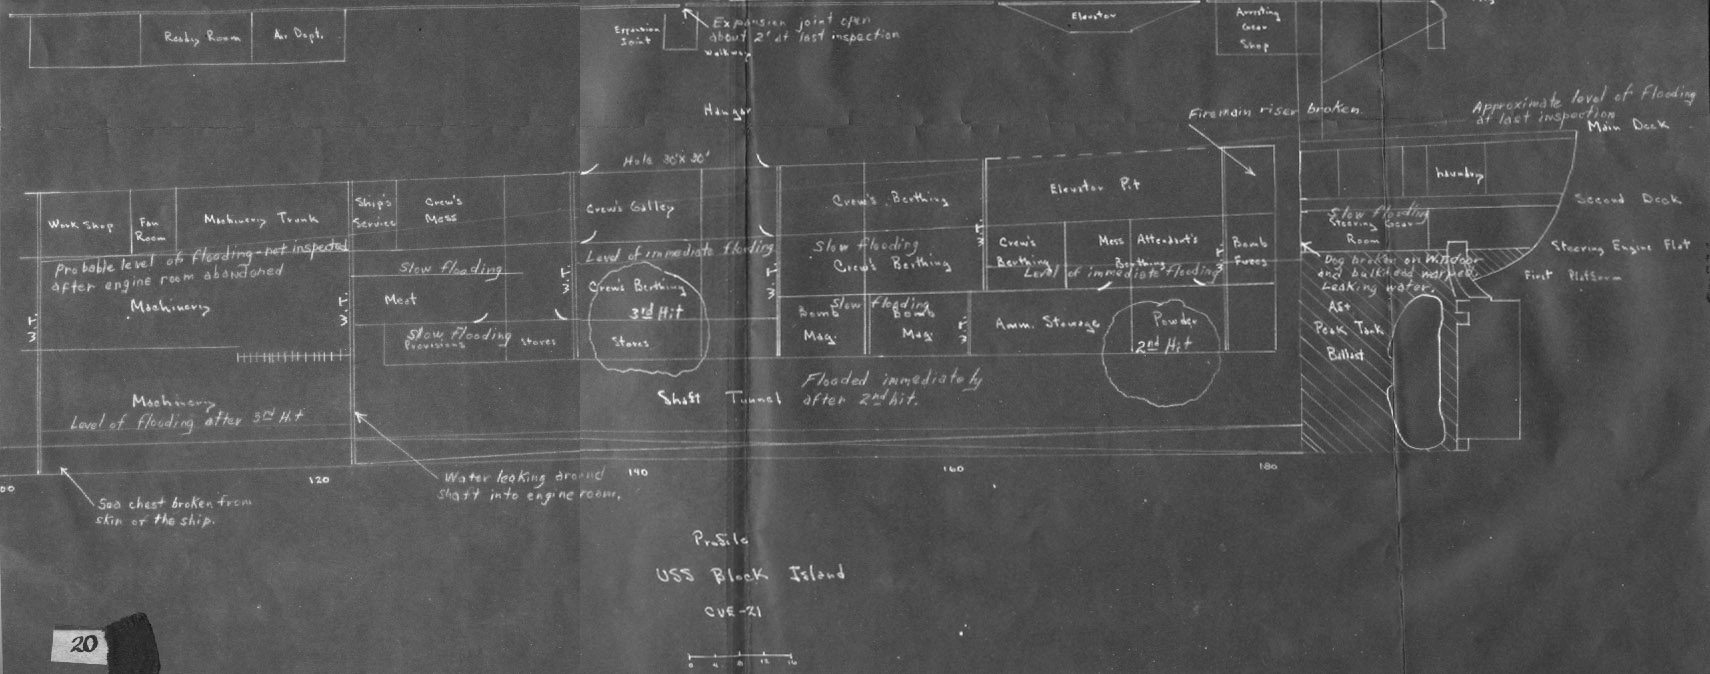 Ready Room
Av. Dept.
Expansion
Joint
Expansion joint open
about 2' at last inspection
Walkway
Elevator
Arresting
Gear
Shop
Hangar
Firemain riser broken
Approximate level of flooding
at last inspection
Main Deck
Hole 30'x30'
Work Shop
Fan
Room
Machinery Trunk
Ship's
Service
Crew's
Mess
Crew's Galley
Crew's Berthing
Elevator Pit
Laundry
Second Deck
Probable level of flooding - not inspected
after engine room abandoned
Machinery
Slow flooding
Meat
Slow flooding
Provisions
Stores
Level of immediate flooding
Crew's Berthing
3rd Hit
Stores
Slow flooding
Crew's Berthing
Slow flooding
Bomb
Mag.
Bomb
Mag.
Crew's
Berthing
Mess Attendant's
Berthing
Level of immediate flooding
Amm. Stowage
Powder
2nd Hit
Bomb
Fuzes
Slow flooding
Steering Gear
Room
Steering Engine Flat
First Platform
Dog broken on W.T. door
and bulkhead warped.
Leaking water.
Aft
Peak Tank
Ballast
W.T.
W.T.
W.T.
W.T.
W.T.
W.T.
W.T.
Machinery
Level of flooding after 3rd Hit
Shaft Tunnel
Flooded immediately
after 2nd hit.
Sea chest broken from
skin of the ship.
Water leaking around
shaft into engine room.
00
120
140
160
180
Profile
USS Block Island
CVE-21
0 4 8 12 16
20